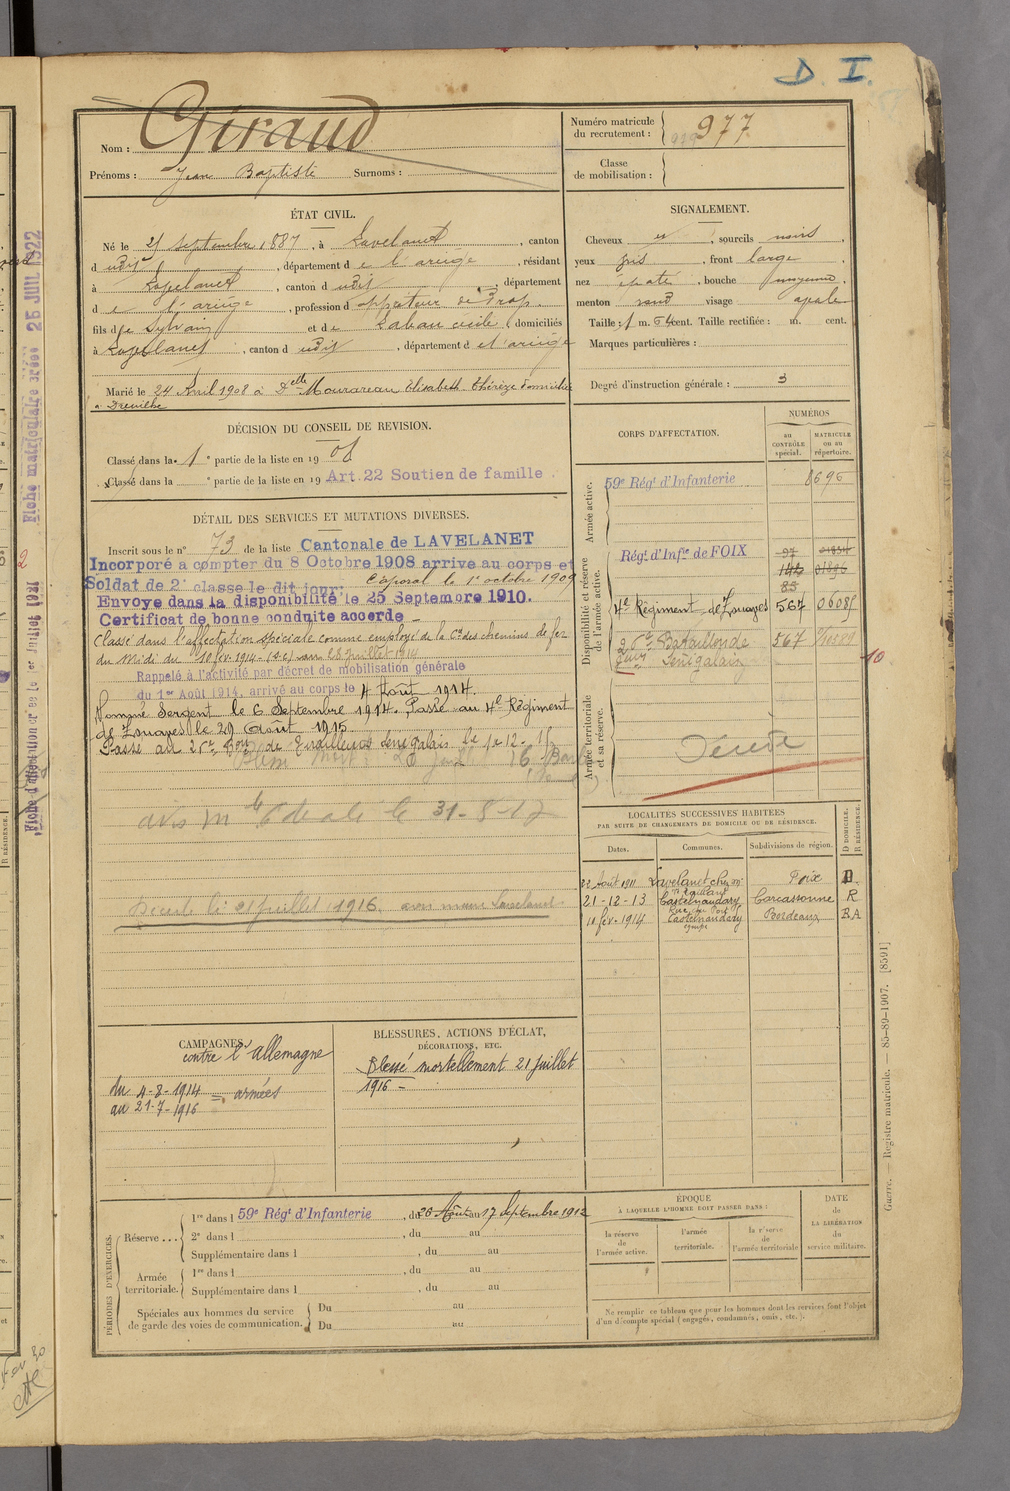 D. I.
Nom : Giraud
Prénoms : Jean Baptiste Surnoms :
Numéro matricule du recrutement : 977
Classe de mobilisation :
ÉTAT CIVIL.
Né le 21 septembre 1887, à Lavelanet, canton
dudit, département de l'ariège, résidant
à Lavelanet, canton dudit, département
de l'ariège, profession d
fils de Sylvain et de Laban cécile, domiciliés
à Lavelanet, canton dudit, département de l'ariège
Marié le 24 Avril 1908 à Delle Elisabeth Thérèze domiciliée
à Dreuilhe
SIGNALEMENT.
Cheveux, sourcils noirs,
yeux gris, front large,
nez épaté, bouche moyenne,
menton rond visage ovale
Taille : 1 m. 64 cent. Taille rectifiée : m. cent.
Marques particulières :
Degré d'instruction générale : 3
DÉCISION DU CONSEIL DE REVISION.
Classé dans la 1e partie de la liste en 1908
Classé dans la e partie de la liste en 19 Art. 22 Soutien de famille
DÉTAIL DES SERVICES ET MUTATIONS DIVERSES.
Inscrit sous le n° 73 de la liste Cantonale de LAVELANET
Incorporé a compter du 8 Octobre 1908 arrive au corps et
Soldat de 2e classe le dit jour: Caporal le 1er octobre 1909
Envoye dans la disponibilité le 25 Septembre 1910.
Certificat de bonne conduite accorde
Classé dans l'affectation spéciale comme employé de la Cie des chemins de fer
du Midi du 10 fév. 1914 - 28 juillet 1914
Rappelé à l'activité par décret de mobilisation générale
du 1er Août 1914, arrivé au corps le 4 Août 1914.
Nommé Sergent le 6 Septembre 1914. Passé au 4e Régiment
de Zouaves le 29 Août 1915
Passé au Bon de Tirailleurs Sénégalais le 1er-12-15
avis le 31-8-17
Décédé le 21 juillet 1916 avis maire Lavelanet
CORPS D'AFFECTATION.
NUMÉROS
au CONTRÔLE spécial.
MATRICULE ou au répertoire.
Armée active.
59e Régt d'Infanterie 8696
Disponibilité et réserve de l'armée active.
Régt d'Infie de FOIX 97
142
83
4e Régiment de Zouaves 567 06085
Bataillon de 567
Sénégalais
10
Armée territoriale et sa réserve.
Décédé
LOCALITÉS SUCCESSIVES HABITÉES
PAR SUITE DE CHANGEMENTS DE DOMICILE OU DE RÉSIDENCE.
Dates. Communes. Subdivisions de région. D DOMICILE. R RÉSIDENCE.
22 Août 1911 Lavelanet chez Mr Foix D.
21-12-13 Castelnaudary Carcassonne R
Rue du Port
10 fév. 1914 Castelnaudary Bordeaux R.A
CAMPAGNES.
contre l'allemagne
du 4-8-1914 = armées
au 21-7-1916
BLESSURES, ACTIONS D'ÉCLAT,
DÉCORATIONS, ETC.
Blessé mortellement 21 juillet
1916 -
PÉRIODES D'EXERCICES.
Réserve ....
1re dans l 59e Régt d'Infanterie, du 26 Août au 17 Septembre 1912
2e dans l, du au
Supplémentaire dans l, du au
Armée territoriale.
1re dans l, du au
Supplémentaire dans l, du au
Spéciales aux hommes du service de garde des voies de communication.
Du au
Du au
ÉPOQUE
À LAQUELLE L'HOMME DOIT PASSER DANS :
la réserve de l'armée active.
l'armée territoriale.
la réserve de l'armée territoriale
DATE de LA LIBÉRATION du service militaire.
Ne remplir ce tableau que pour les hommes dont les services font l'objet
d'un décompte spécial (engagés, condamnés, omis, etc.).
Guerre. — Registre matricule. — 85-89-1907. [8591]
Fiche matriculaire créée 25 JUIL 1922